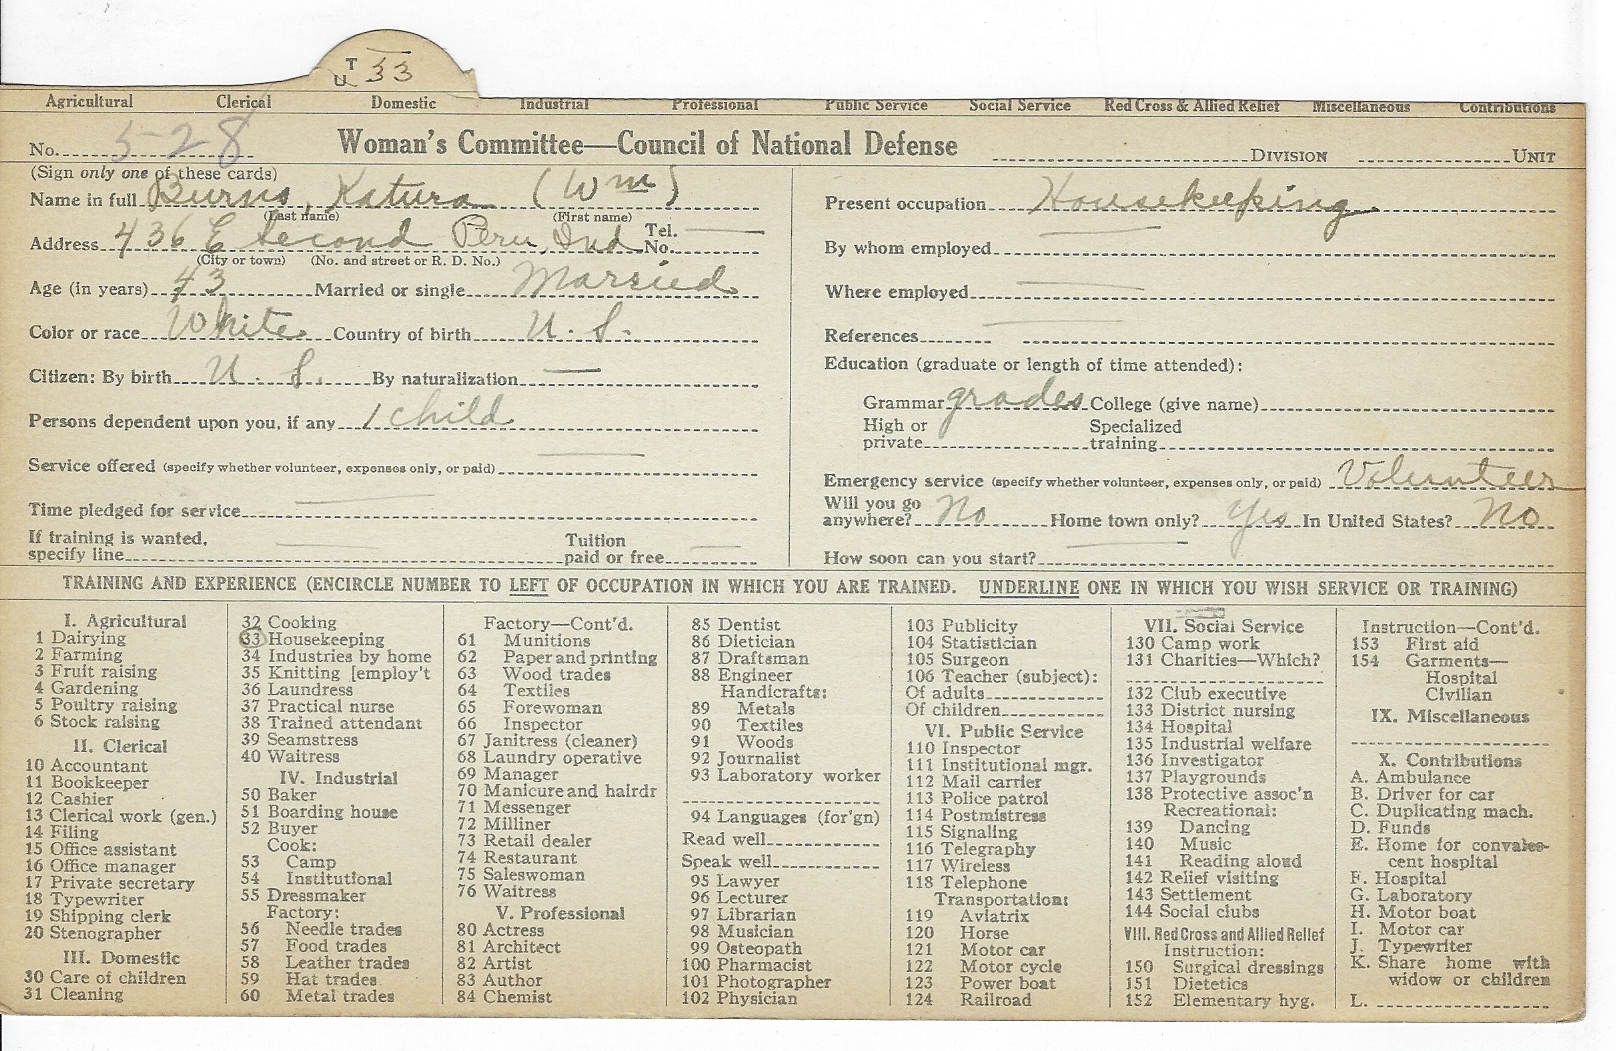 T
U 33
Agricultural Clerical Domestic Industrial Professional Public Service Social Service Red Cross & Allied Relief Miscellaneous Contributions
No. 5-28 Woman's Committee—Council of National Defense DIVISION UNIT
(Sign only one of these cards)
Name in full Burns, Katura (Wm)
(Last name) (First name)
Address 436 E Second Peru, Ind Tel. No. —
(City or town) (No. and street or R. D. No.)
Age (in years) 43 Married or single Married
Color or race White Country of birth U. S.
Citizen: By birth U. S. By naturalization —
Persons dependent upon you, if any 1 child
Service offered (specify whether volunteer, expenses only, or paid) —
Time pledged for service —
If training is wanted,
specify line — Tuition
paid or free —
Present occupation Housekeeping
By whom employed —
Where employed —
References —
Education (graduate or length of time attended):
Grammar grades College (give name)
High or
private Specialized
training
Emergency service (specify whether volunteer, expenses only, or paid) Volunteer
Will you go
anywhere? No Home town only? Yes In United States? No
How soon can you start? —
TRAINING AND EXPERIENCE (ENCIRCLE NUMBER TO LEFT OF OCCUPATION IN WHICH YOU ARE TRAINED. UNDERLINE ONE IN WHICH YOU WISH SERVICE OR TRAINING)
I. Agricultural
1 Dairying
2 Farming
3 Fruit raising
4 Gardening
5 Poultry raising
6 Stock raising
II. Clerical
10 Accountant
11 Bookkeeper
12 Cashier
13 Clerical work (gen.)
14 Filing
15 Office assistant
16 Office manager
17 Private secretary
18 Typewriter
19 Shipping clerk
20 Stenographer
III. Domestic
30 Care of children
31 Cleaning
32 Cooking
33 Housekeeping
34 Industries by home
35 Knitting [employ't
36 Laundress
37 Practical nurse
38 Trained attendant
39 Seamstress
40 Waitress
IV. Industrial
50 Baker
51 Boarding house
52 Buyer
Cook:
53 Camp
54 Institutional
55 Dressmaker
Factory:
56 Needle trades
57 Food trades
58 Leather trades
59 Hat trades
60 Metal trades
Factory—Cont'd.
61 Munitions
62 Paper and printing
63 Wood trades
64 Textiles
65 Forewoman
66 Inspector
67 Janitress (cleaner)
68 Laundry operative
69 Manager
70 Manicure and hairdr
71 Messenger
72 Milliner
73 Retail dealer
74 Restaurant
75 Saleswoman
76 Waitress
V. Professional
80 Actress
81 Architect
82 Artist
83 Author
84 Chemist
85 Dentist
86 Dietician
87 Draftsman
88 Engineer
Handicrafts:
89 Metals
90 Textiles
91 Woods
92 Journalist
93 Laboratory worker
94 Languages (for'gn)
Read well
Speak well
95 Lawyer
96 Lecturer
97 Librarian
98 Musician
99 Osteopath
100 Pharmacist
101 Photographer
102 Physician
103 Publicity
104 Statistician
105 Surgeon
106 Teacher (subject):
Of adults
Of children
VI. Public Service
110 Inspector
111 Institutional mgr.
112 Mail carrier
113 Police patrol
114 Postmistress
115 Signaling
116 Telegraphy
117 Wireless
118 Telephone
Transportation:
119 Aviatrix
120 Horse
121 Motor car
122 Motor cycle
123 Power boat
124 Railroad
VII. Social Service
130 Camp work
131 Charities—Which?
132 Club executive
133 District nursing
134 Hospital
135 Industrial welfare
136 Investigator
137 Playgrounds
138 Protective assoc'n
Recreational:
139 Dancing
140 Music
141 Reading aloud
142 Relief visiting
143 Settlement
144 Social clubs
VIII. Red Cross and Allied Relief
Instruction:
150 Surgical dressings
151 Dietetics
152 Elementary hyg.
Instruction—Cont'd.
153 First aid
154 Garments—
Hospital
Civilian
IX. Miscellaneous
X. Contributions
A. Ambulance
B. Driver for car
C. Duplicating mach.
D. Funds
E. Home for convales-
cent hospital
F. Hospital
G. Laboratory
H. Motor boat
I. Motor car
J. Typewriter
K. Share home with
widow or children
L.